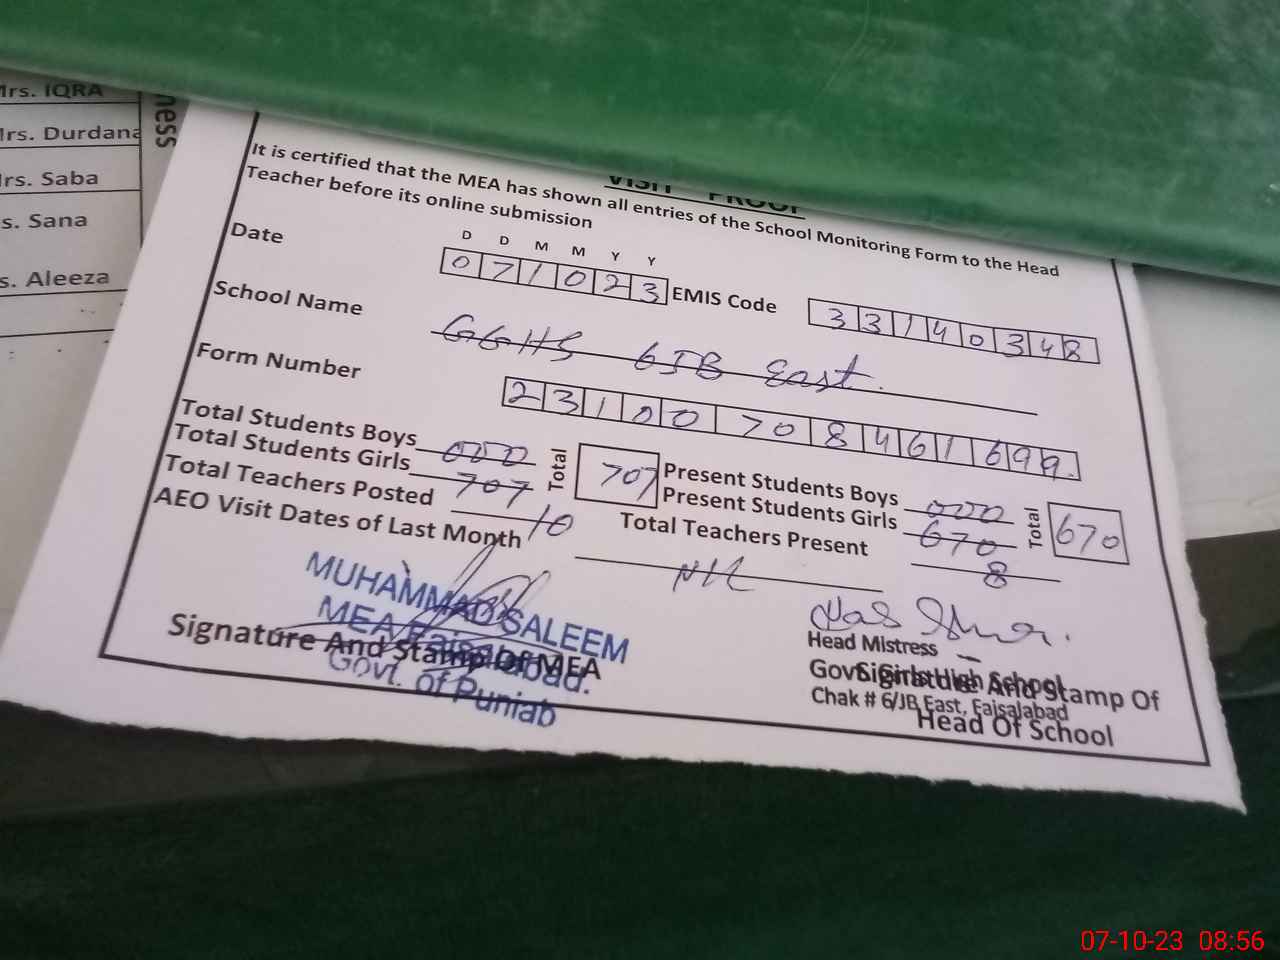 Mrs. IQRA
Mrs. Durdana
Mrs. Saba
s. Sana
s. Aleeza
ness
VISIT PROOF
It is certified that the MEA has shown all entries of the School Monitoring Form to the Head
Teacher before its online submission
D D M M Y Y
Date 071023 EMIS Code 33140348
School Name GGHS 6JB East.
Form Number 23100708461699.
Total Students Boys 000 Total 707 Present Students Boys 000 Total 670
Total Students Girls 707 Present Students Girls 670
Total Teachers Posted 10 Total Teachers Present 8
AEO Visit Dates of Last Month Nil
MUHAMMAD SALEEM
MEA Faisalabad.
Govt. of Punjab
Signature And Stamp Of MEA
Head Mistress
Govt. Girls High School
Chak # 6/JB East, Faisalabad
Signature And Stamp Of
Head Of School
07-10-23 08:56